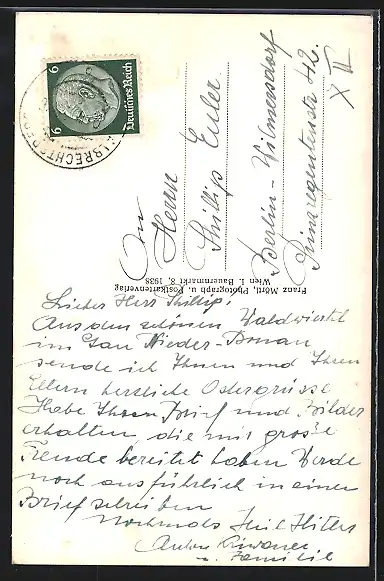 Lieber Herr Phillip!
Aus dem schönen Waldviertel
im Gau Nieder-Donau
sende ich Ihnen und Ihren
Eltern herzliche Ostergrüsse
Habe Ihren Brief und Bilder
erhalten, die mir grosse
Freude bereitet haben Werde
noch ausführlich in einen
Brief schreiben
Nochmals Heil Hitler
Anton
u. Familie
An
Herrn
Phillip Euler
Berlin-Wilmersdorf
Prinzregentenstr 42.
X II
Franz Mörtl, Photograph u. Postkartenverlag
Wien I. Bauernmarkt 3, 1938
Deutsches Reich
6
6